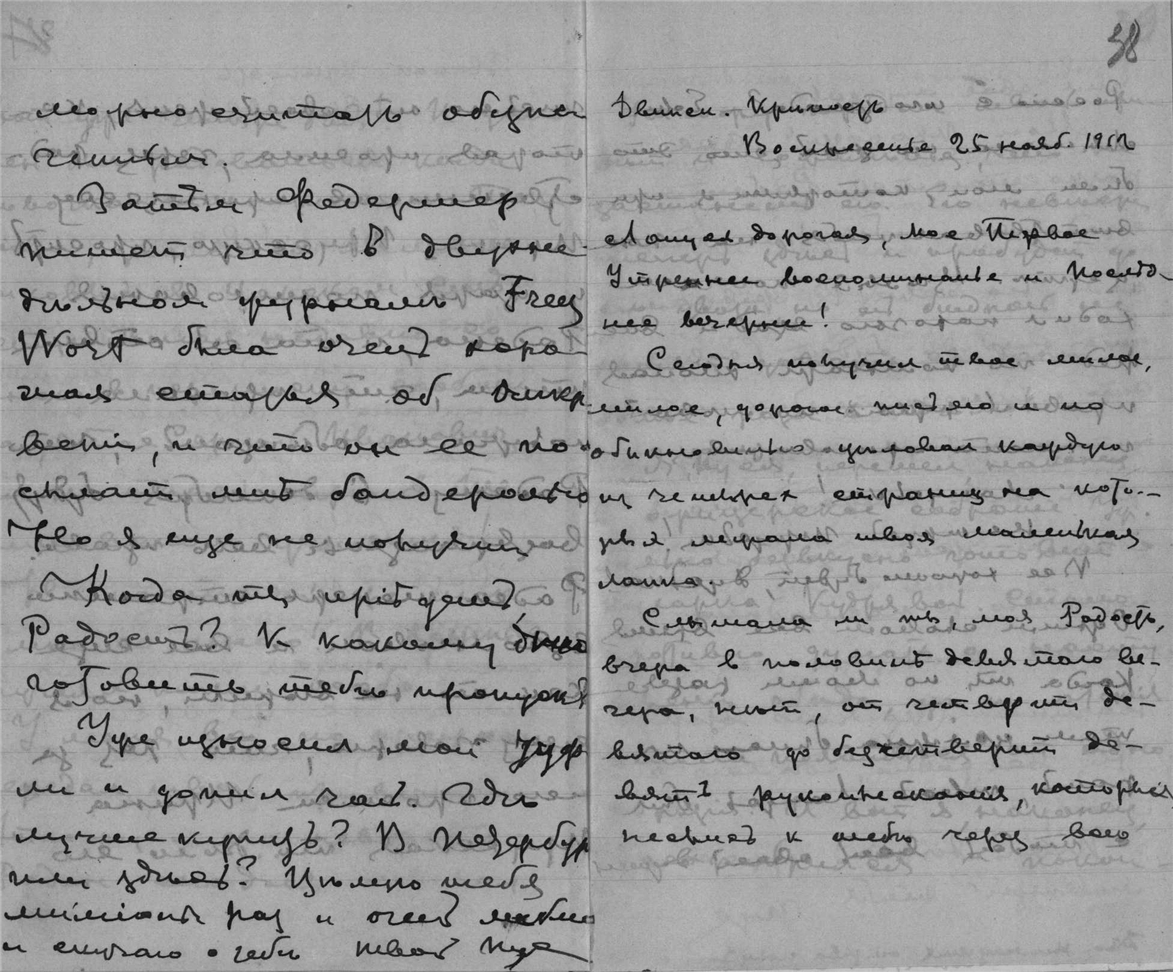 можно считать обезпе
ченным.
Затѣм Федермер
пишет что в двухне-
дѣльном журналѣ Frey
Wort была очень хоро
шая статья об
и что он ее по
сылает мнѣ бандеролью
Но я еще не получил
Когда ты пріѣдешь
Радость? К какому дню
готовить тебѣ пропуск?
Уже износил мои туф
ли и допил чай. Гдѣ
лучше купить? В Петербур
или здѣсь? Цѣлую тебя
раз и очень люблю
и скучаю о тебѣ твой
38
Двинск. Кришер
Воскресенье 25 нояб. 1912
дорогая, мое Первое
Утреннее воспоминанье и Послѣд-
нее вечернее!
Сегодня получил твое милое,
милое, дорогое письмо и по
обыкновению цѣловал каждую
из четырех страниц на кото-
рых играла твоя маленькая
лапка.
Слышала ли ты, моя Радость,
вчера в половинѣ девятого ве-
чера, нѣт, от четверти де-
вятого до без четверти де-
вять рукоплескания, которыя
неслись к тебѣ через всю